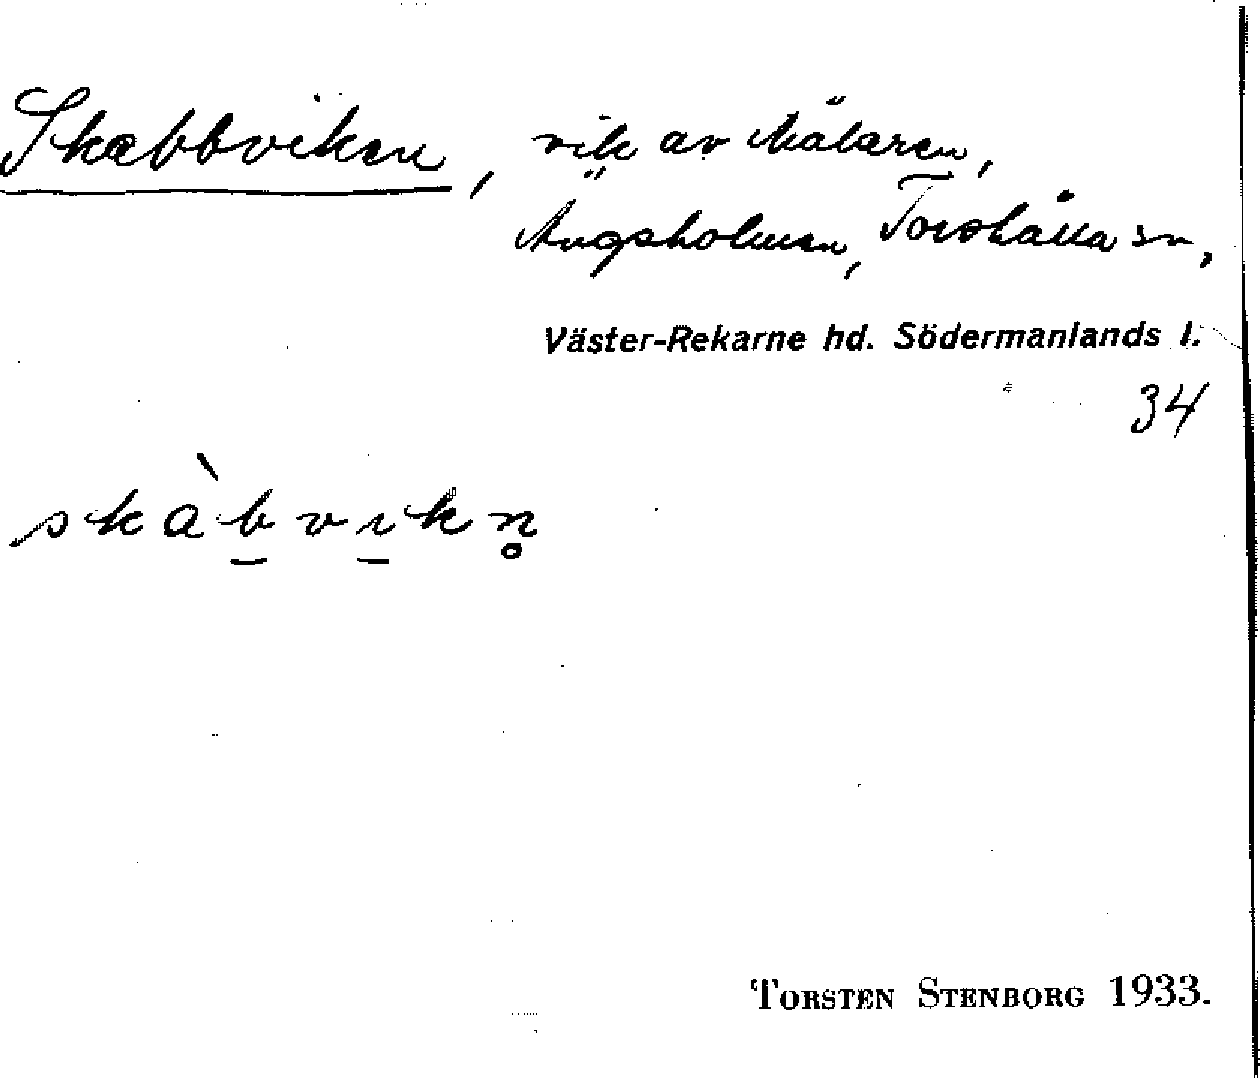 Skabbviken, vik av Mälaren,
Ängsholmen, Torshälla sn,
Väster-Rekarne hd. Södermanlands l.
34
skàb̲vı̲kn̥
TORSTEN STENBORG 1933.